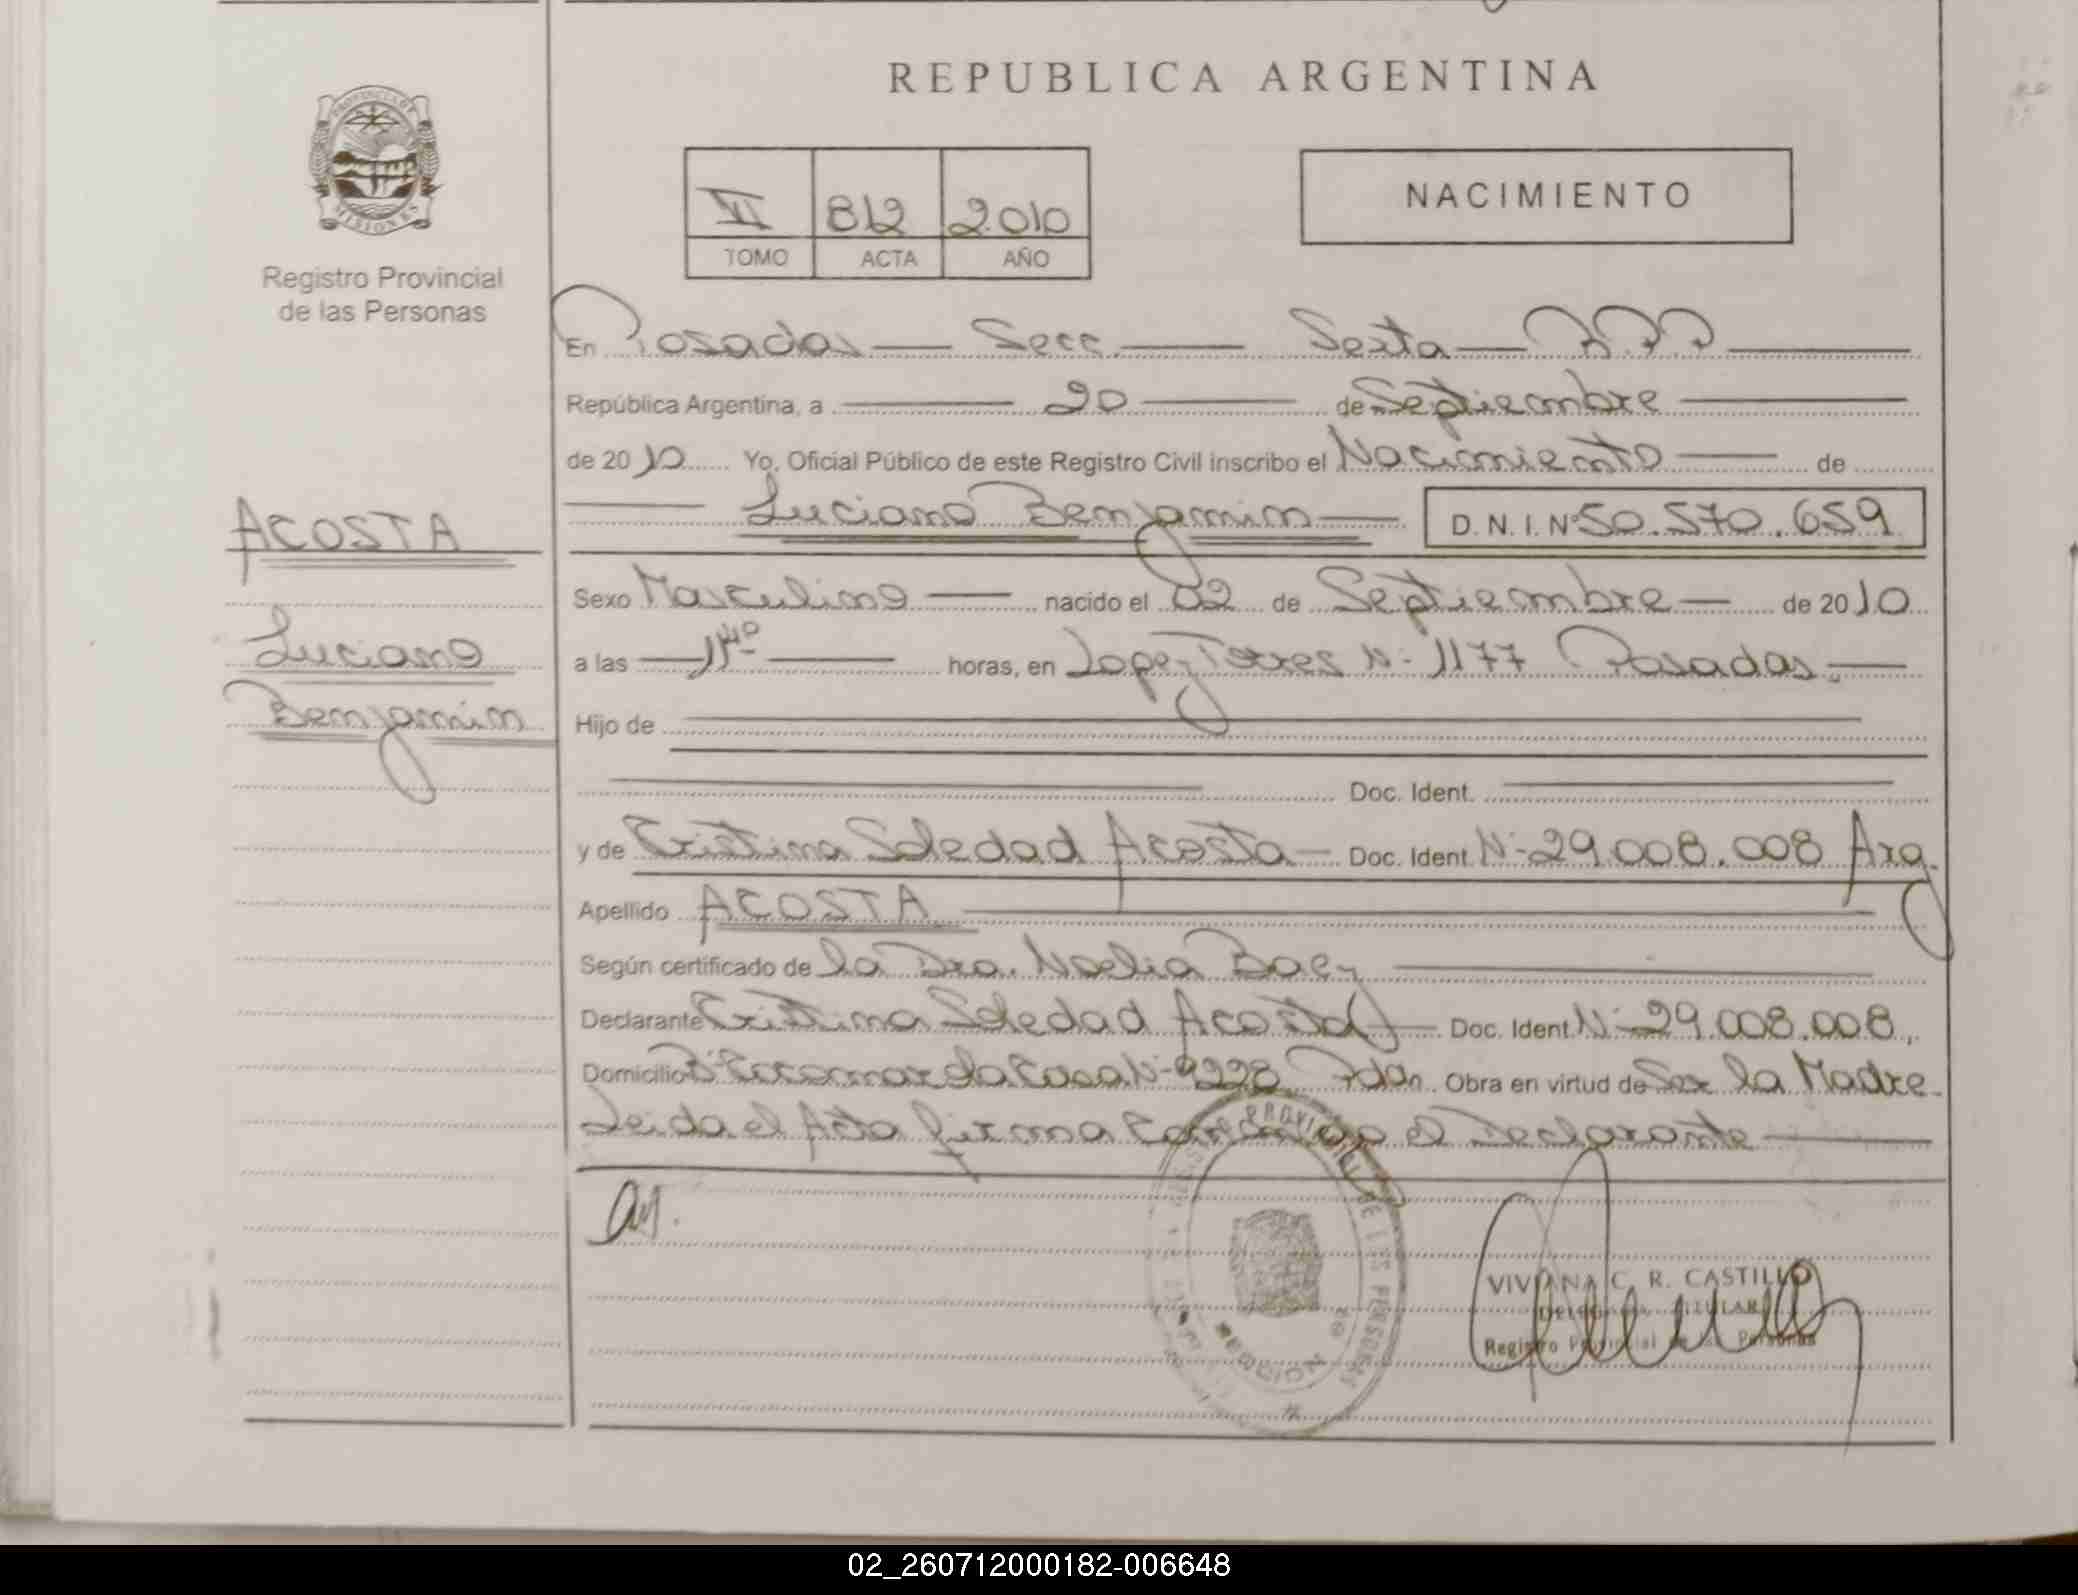 REPUBLICA ARGENTINA
PROVINCIA DE
MISIONES
Registro Provincial
de las Personas
VI 812 2010
TOMO ACTA AÑO
NACIMIENTO
En Posadas — Secc. — Sexta — R.P.P
República Argentina, a 20 de Septiembre
de 2010 Yo, Oficial Público de este Registro Civil inscribo el Nacimiento de
Luciano Benjamin D.N.I. Nº 50.570.659
ACOSTA
Luciano
Benjamin
Sexo Masculino nacido el 02 de Septiembre de 2010
a las horas, en Lopez Torres Nº 1177 Posadas.
Hijo de
Doc. Ident.
y de Cristina Soledad Acosta — Doc. Ident. Nº 29.008.008 Arg.
Apellido ACOSTA
Según certificado de la Dra. Noelia Baez
Declarante Cristina Soledad Acosta Doc. Ident. Nº 29.008.008,
Domicilio Casa Nº 9228 Pdas. Obra en virtud de Ser la Madre.
Leida el Acta firma la Declarante
VIVIANA C. R. CASTILLO
DELEGADA TITULAR
Registro Provincial de las Personas
02_260712000182-006648